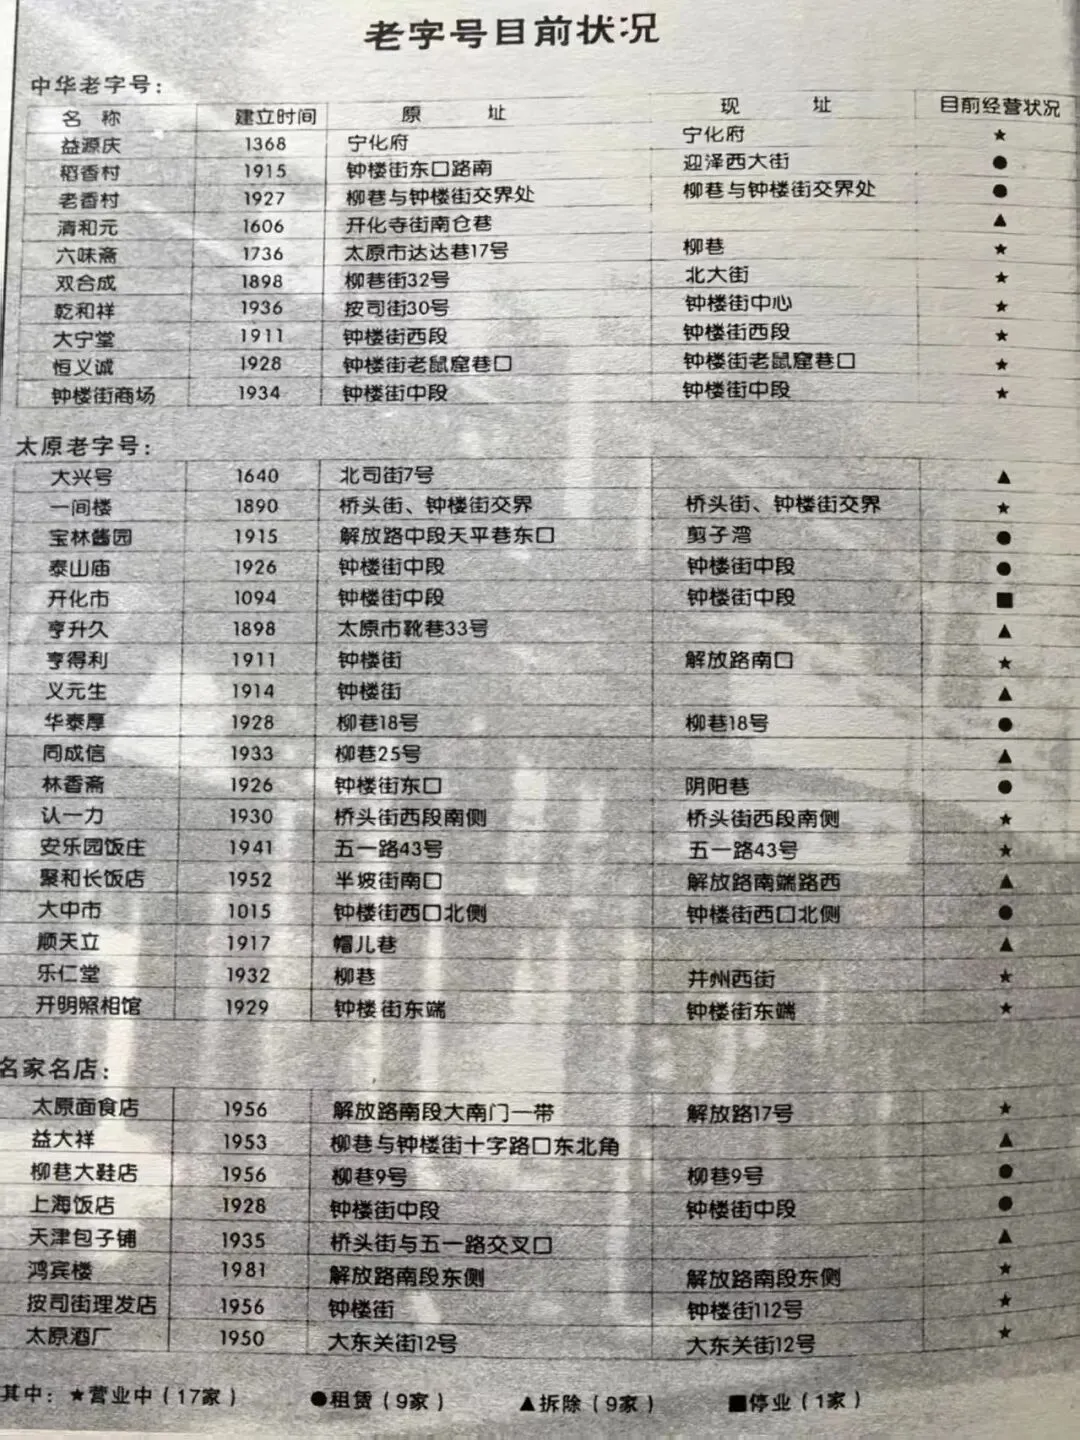 老字号目前状况
中华老字号：
名 称 建立时间 原 址 现 址 目前经营状况
益源庆 1368 宁化府 宁化府 ★
稻香村 1915 钟楼街东口路南 迎泽西大街 ●
老香村 1927 柳巷与钟楼街交界处 柳巷与钟楼街交界处 ●
清和元 1606 开化寺街南仓巷 ▲
六味斋 1736 太原市达达巷17号 柳巷 ★
双合成 1898 柳巷街32号 北大街 ★
乾和祥 1936 按司街30号 钟楼街中心 ★
大宁堂 1911 钟楼街西段 钟楼街西段 ★
恒义诚 1928 钟楼街老鼠窟巷口 钟楼街老鼠窟巷口 ★
钟楼街商场 1934 钟楼街中段 钟楼街中段 ★
太原老字号：
大兴号 1640 北司街7号 ▲
一间楼 1890 桥头街、钟楼街交界 桥头街、钟楼街交界 ★
宝林酱园 1915 解放路中段天平巷东口 剪子湾 ●
泰山庙 1926 钟楼街中段 钟楼街中段 ●
开化市 1094 钟楼街中段 钟楼街中段 ■
亨升久 1898 太原市靴巷33号 ▲
亨得利 1911 钟楼街 解放路南口 ★
义元生 1914 钟楼街 ▲
华泰厚 1928 柳巷18号 柳巷18号 ●
同成信 1933 柳巷25号 ▲
林香斋 1926 钟楼街东口 阴阳巷 ●
认一力 1930 桥头街西段南侧 桥头街西段南侧 ★
安乐园饭庄 1941 五一路43号 五一路43号 ★
聚和长饭店 1952 半坡街南口 解放路南端路西 ▲
大中市 1015 钟楼街西口北侧 钟楼街西口北侧 ●
顺天立 1917 帽儿巷 ▲
乐仁堂 1932 柳巷 并州西街 ★
开明照相馆 1929 钟楼街东端 钟楼街东端 ★
名家名店：
太原面食店 1956 解放路南段大南门一带 解放路17号 ★
益大祥 1953 柳巷与钟楼街十字路口东北角 ▲
柳巷大鞋店 1956 柳巷9号 柳巷9号 ●
上海饭店 1928 钟楼街中段 钟楼街中段 ●
天津包子铺 1935 桥头街与五一路交叉口 ▲
鸿宾楼 1981 解放路南段东侧 解放路南段东侧 ★
按司街理发店 1956 钟楼街 钟楼街112号 ★
太原酒厂 1950 大东关街12号 大东关街12号 ★
其中：★营业中（17家） ●租赁（9家） ▲拆除（9家） ■停业（1家）